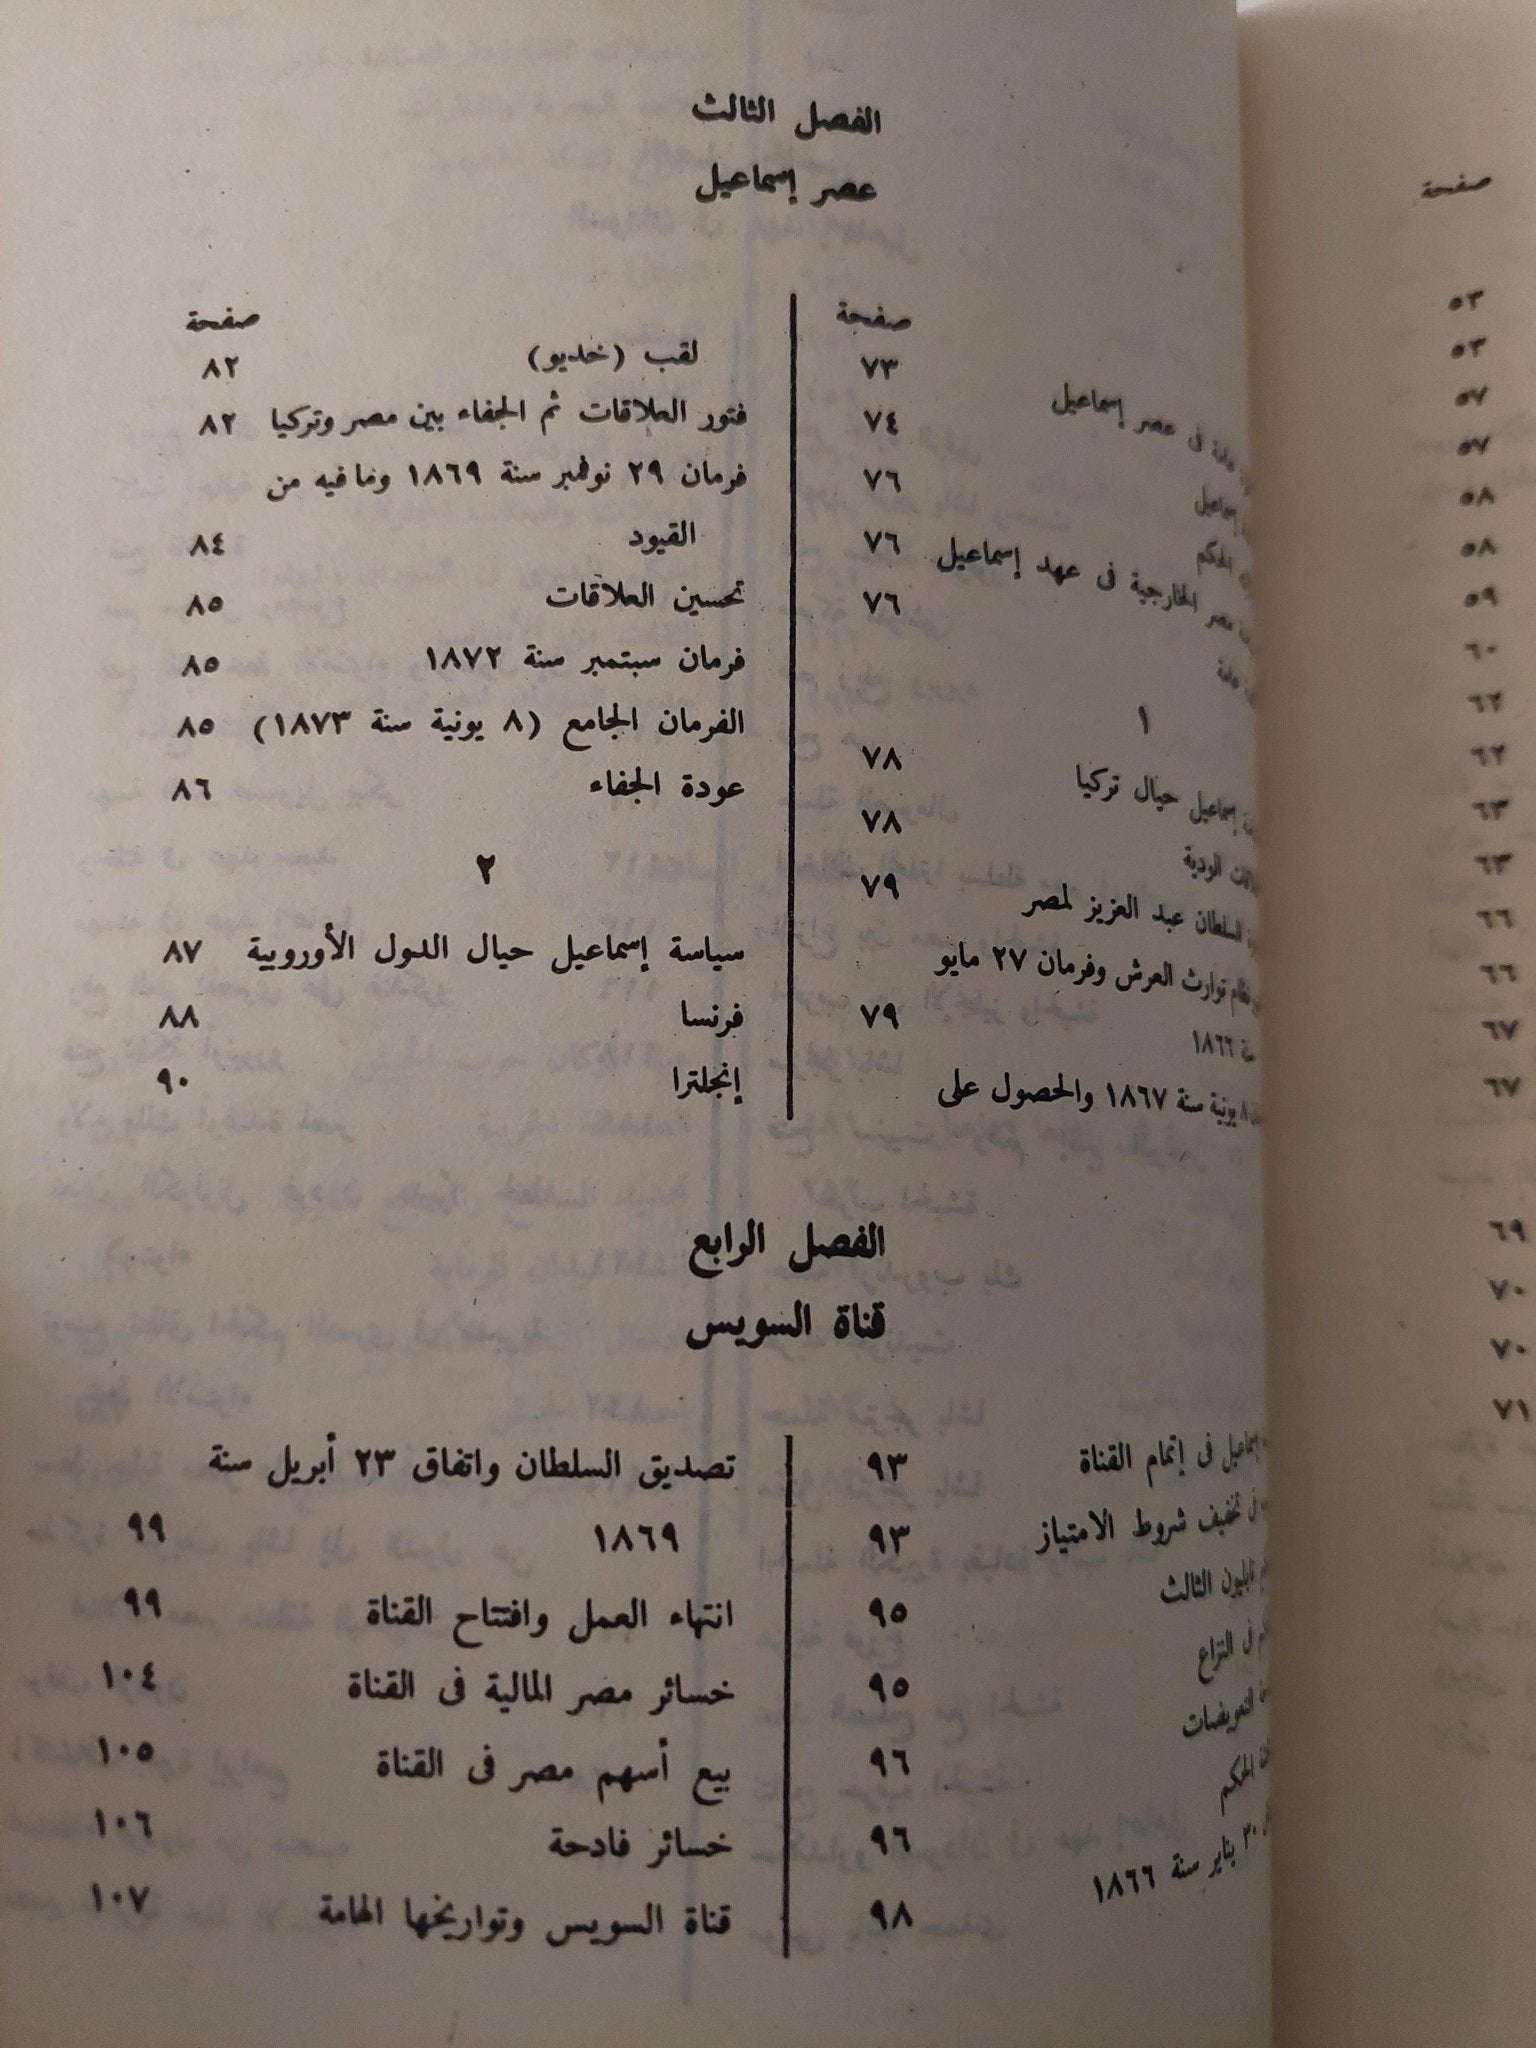 الفصل الثالث
عصر إسماعيل
صفحة
٧٣
فى عصر إسماعيل ٧٤
إسماعيل ٧٦
الحكم ٧٦
مصر الخارجية فى عهد إسماعيل ٧٦
عامة
١
إسماعيل حيال تركيا ٧٨
الودية ٧٨
السلطان عبد العزيز لمصر ٧٩
نظام توارث العرش وفرمان ٢٧ مايو
١٨٦٦ ٧٩
٨ يونية سنة ١٨٦٧ والحصول على
صفحة
لقب (خديو) ٨٢
فتور العلاقات ثم الجفاء بين مصر وتركيا ٨٢
فرمان ٢٩ نوفمبر سنة ١٨٦٩ وما فيه من
القيود ٨٤
تحسين العلاقات ٨٥
فرمان سبتمبر سنة ١٨٧٢ ٨٥
الفرمان الجامع (٨ يونية سنة ١٨٧٣) ٨٥
عودة الجفاء ٨٦
٢
سياسة إسماعيل حيال الدول الأوروبية ٨٧
فرنسا ٨٨
إنجلترا ٩٠
الفصل الرابع
قناة السويس
إسماعيل فى إتمام القناة ٩٣
فى تخفيف شروط الامتياز ٩٣
نابليون الثالث ٩٥
فى النزاع ٩٥
التعويضات ٩٦
الحكم ٩٦
٣٠ يناير سنة ١٨٦٦ ٩٨
تصديق السلطان واتفاق ٢٣ أبريل سنة
١٨٦٩ ٩٩
انتهاء العمل وافتتاح القناة ٩٩
خسائر مصر المالية فى القناة ١٠٤
بيع أسهم مصر فى القناة ١٠٥
خسائر فادحة ١٠٦
قناة السويس وتواريخها الهامة ١٠٧
صفحة
٥٣
٥٣
٥٧
٥٧
٥٨
٥٨
٥٩
٦٠
٦٢
٦٢
٦٣
٦٣
٦٦
٦٦
٦٧
٦٧
٦٩
٧٠
٧٠
٧١